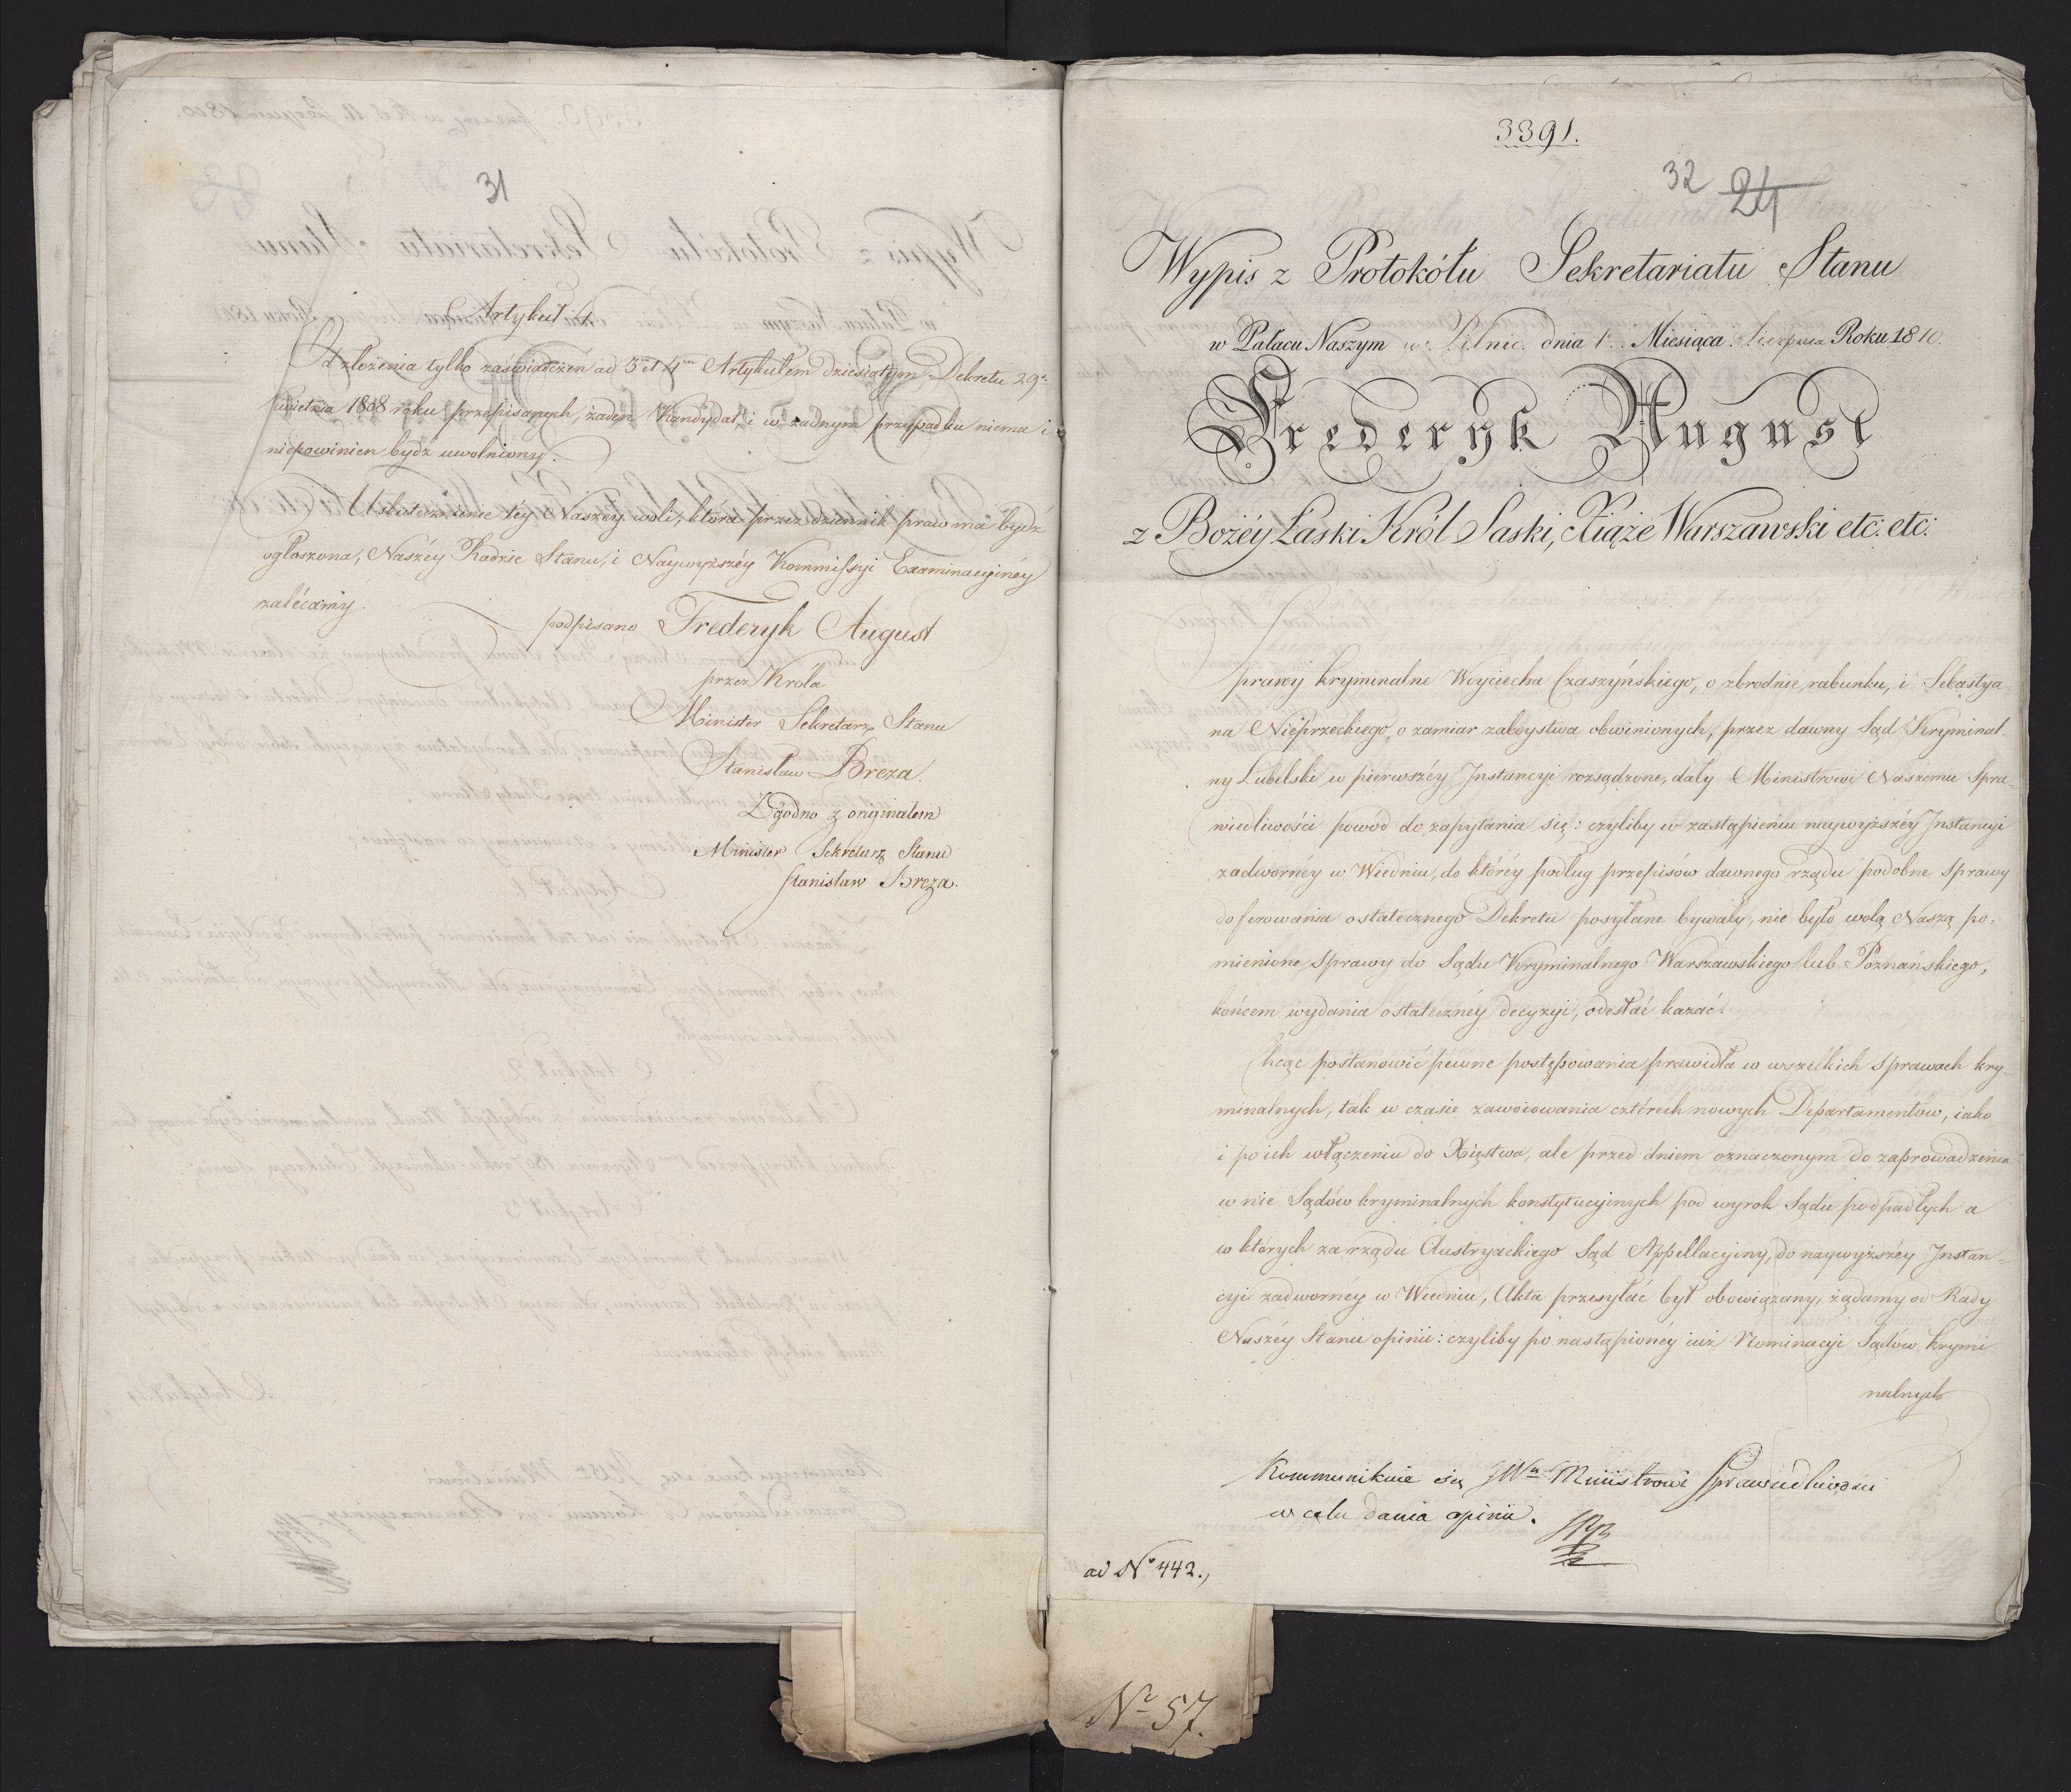 31
Artykuł 4.
Od złożenia tylko zaświadczeń ad 3 et 4um Artykułem dziesiątym Dekretu 29o
kwietnia 1808 roku przepisanych, żaden Kandydat, i w żadnym przypadku niema i
niepowinien bydź uwolniony.
Uskutecznienie téy Naszey woli, która przez dziennik praw ma bydź
ogłoszona, Naszéy Radzie Stanu, i Naywyższéy Kommissyi Examinacyinéy
zalécamy.
podpisano Frederyk August
przez Króla
Minister Sekretarz Stanu
Stanisław Breza.
Zgodno z originałem
Minister Sekretarz Stanu
Stanisław Breza.
3391.
32 24
Wypis z Protokółu Sekretariatu Stanu
w Pałacu Naszym w Pilnic dnia 1. Miesiąca Sierpnia Roku 1810.
Frederyk August
z Bożéy Łaski Król Saski, Xiąże Warszawski etc: etc:
Sprawy kryminalne Woyciecha Czaszyńskiego, o zbrodnie rabunku, i Sebastya
na Nieprzeckiego, o zamiar zabóystwa obwinionych, przez dawny Sąd Kryminal-
ny Lubelski w pierwszéy Instancyi rozsądzone, dały Ministrowi Naszemu Spra-
wiedliwości powód do zapytania się: czyliby w zastąpieniu naywyższéy Instancyi
zadwornéy w Wiedniu, do któréy podług przepisów dawnego rządu podobne sprawy
do ferowania ostatecznego Dekretu posyłane bywały, nie było wolą Naszą po-
mienione sprawy do Sądu Kryminalnego Warszawskiego lub Poznańskiego,
końcem wydania ostatecznéy decyzyi, odesłać kazać.
Chcąc postanowić pewne postępowania prawidła w wszelkich sprawach kry-
minalnych, tak w czasie zawoiowania czterech nowych Departamentów, iako
i po ich włączeniu do Xięstwa, ale przed dniem oznaczonym do zaprowadzenia
w nie Sądów kryminalnych konstytucyinych pod wyrok Sądu podpadłych a
w których za rządu Austryackiego Sąd Appellacyiny, do naywyższéy Instan-
cyi zadwornéy w Wiedniu, Akta przesyłać był obowiązany, żądamy od Rady
Naszéy Stanu opinii: czyliby po nastąpionéy iuż Nominacyi Sądów krymi
nalnych
Kommunikuie się JWu Ministrowi Sprawiedliwości
w celu dania opinii.
ad No 442.,
No 57.